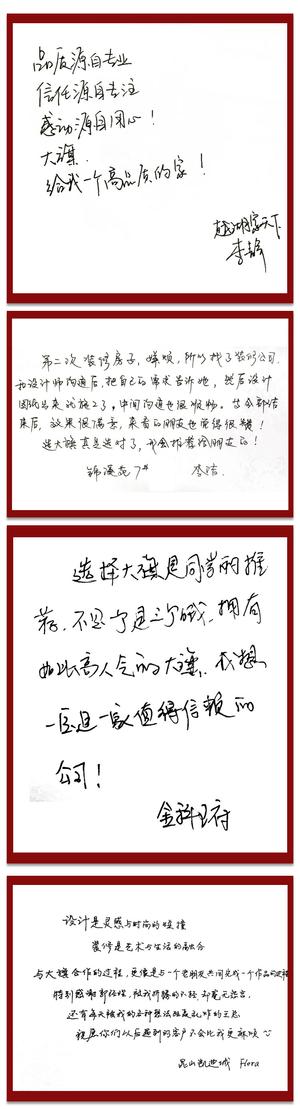 品质源自专业
信任源自专注
感动源自用心！
大旗．
给我一个高品质的家！
家天下
第二次装修房子，嫌烦，所以找了装修公司．
和设计师沟通后，把自己的需求告诉她，然后设计
图纸出来就施工了，中间沟通也很顺畅。
后，效果很满意，来看的朋友也觉得很赞！
选大旗真是选对了，
锦溪花 7#
选择大旗是同学的推
荐．不是一个是三个哦．拥有
如此高人气的大旗．我想
一定是一家值得信赖的
公司！
金科王府
设计是灵感与时尚的碰撞
装修是艺术与生活的融合
与大旗合作的过程，更像是与一个老朋友共同完成一个作品的过程
特别感谢郭经理，被我折腾的不轻，却毫无怨言．
还有每天被我的各种想法狂轰乱炸的王总
祝愿你们以后遇到的客户不会比我更麻烦
昆山凯迪城 Flora